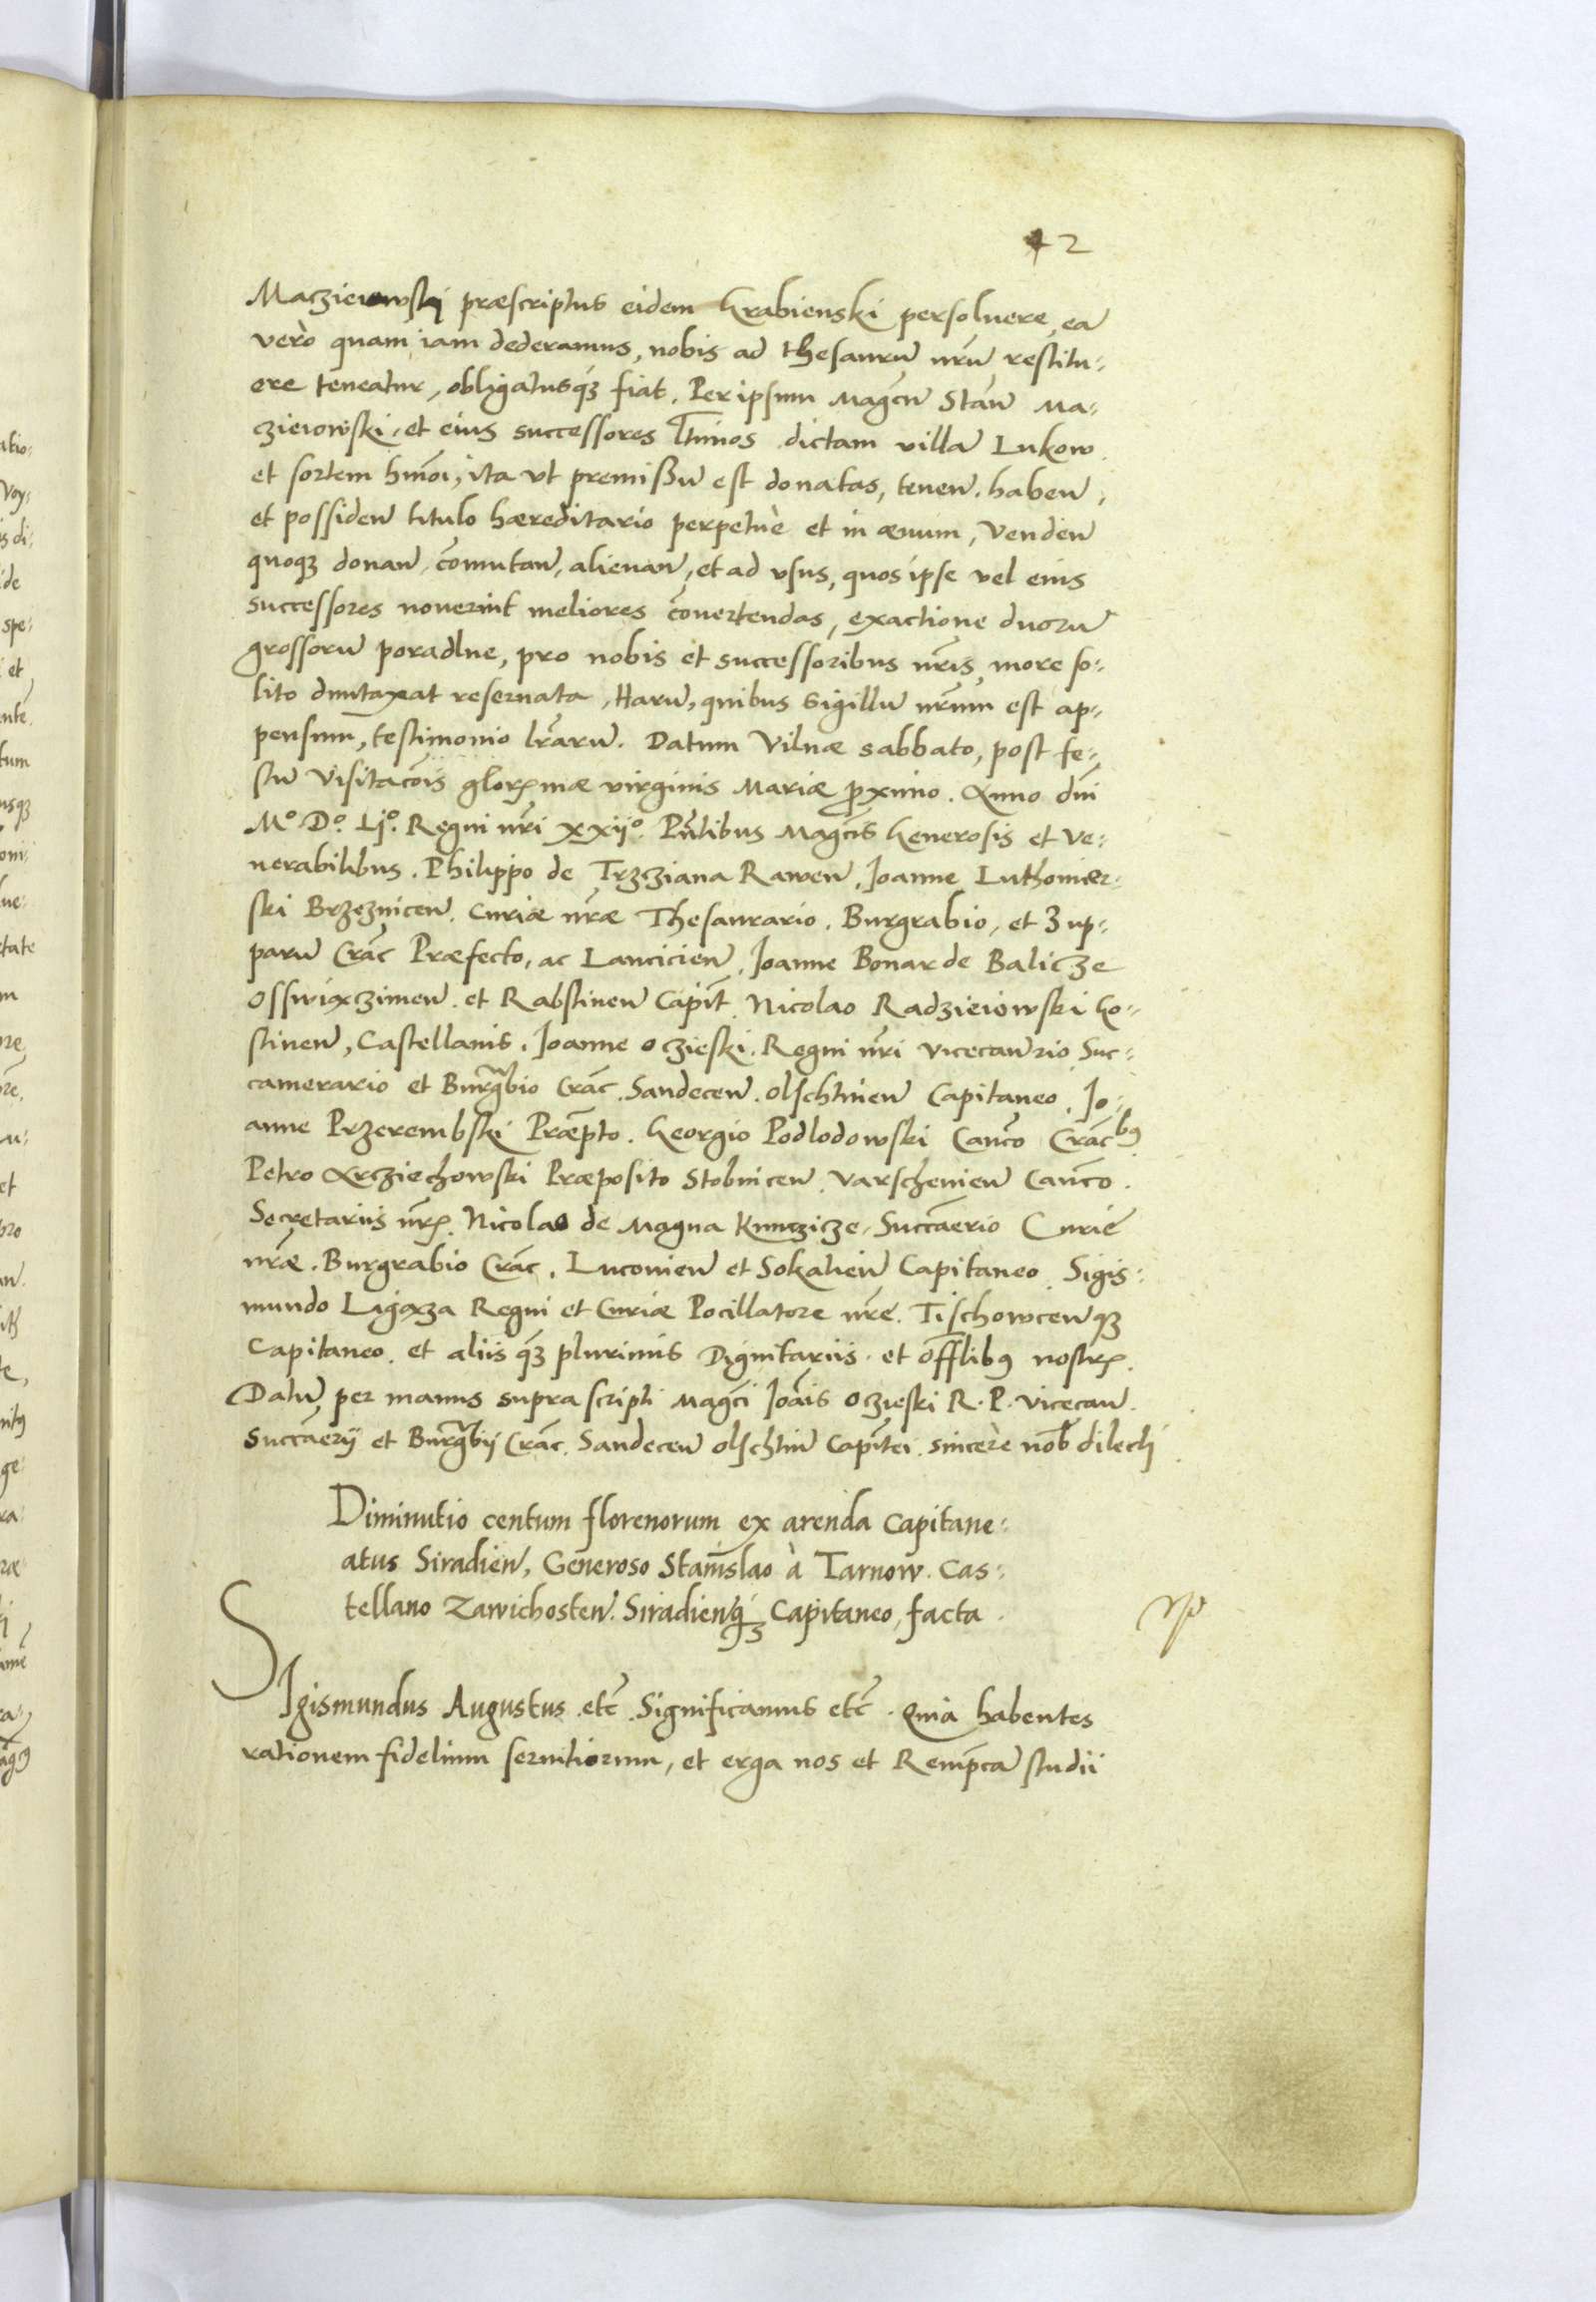 42
Maczieiowski præscriptus eidem Grabienski persoluere, ea
verò quam iam dederamus, nobis ad thesaurū nr̄ū restitu-
ere teneatur, obligatusq́ꝫ fiat. Per ipsum Magc̄ū Stan̄ Ma-
czieiowski, et eius successores Ltimos dictam villā Lukow
et sortem hmōi, ita vt premissū est donatas, tenen̄. haben̄,
et possiden̄ titulo hæreditario perpetuè et in æuum, Venden̄
quoqꝫ donan̄, com̄utan̄, alienan̄, et ad vsus, quos ipse vel eius
successores nouerint meliores cōuertendas, exactione duorū
grossorū poradlne, pro nobis et successoribus nr̄is, more so-
lito duntaxat reseruata, Harū, quibus Sigillū nr̄um est ap-
pensum, testimonio lr̄arū. Datum Vilnæ sabbato, post fe-
stū Visitacōis glor̄mæ virginis Mariæ pͦximo. Anno dn̄i
Mº Dº Ljº. Regni nr̄i xxijº. Pn̄tibus Magc̄is Generosis et Ve-
nerabilibus. Philippo de Trzcziana Rawen̄, Joanne Luthomier-
ski Brzeznicen̄. Curiæ nr̄æ Thesaurario. Burgrabio, et Zup-
parū Crac̄ Præfecto, ac Lancicien̄, Joanne Bonar de Balicze
Osswiaczimen̄. et Rabstinen̄ Capit̄. Nicolao Radzieiowski Go-
stinen̄, Castellanis. Joanne Oczieski. Regni nr̄i vicecan̄rio Suc-
camerario et Burgrabio Crac̄. Sandecen̄. Olschtinen̄ Capitaneo. Jo-
anne Przerembski Præp̄to. Georgio Podlodowski Canc̄o Crac̄bꝰ
Petro Arcziechowski Præposito Stobnicen̄. Varscheuien̄ Canc̄o.
Secretariis nr̄. Nicolao de Magna Kunczicze. Succaērio Curie
nr̄æ. Burgrabio Crac̄. Luconien̄ et Sokalien̄ Capitaneo. Sigis-
mundo Ligaza Regni et Curiæ Pocillatore nr̄e. Tischowcen̄qꝫ
Capitaneo. et aliis q́ꝫ plurimis Dignitariis. et Offlibꝰ nostr̄.
Datū per manus supra scripti Magc̄i Joāis Oczieski R. P. vicecan̄.
Succaērij et Burgrabij Crac̄. Sandecen̄ Olschtin̄ Capit̄ei. sincere nob̄ dilecti
Diminutio centum florenorum ex arenda Capitane-
atus Siradien̄, Generoso Stanislao à Tarnow. Cas-
tellano Zawichosten̄. Siradien̄qꝫ Capitaneo, facta.
SIgismundus Augustus. etc̄. Significamus etc̄. Quia habentes
rationem fidelium seruitiorum, et erga nos et Remp̄cā studii